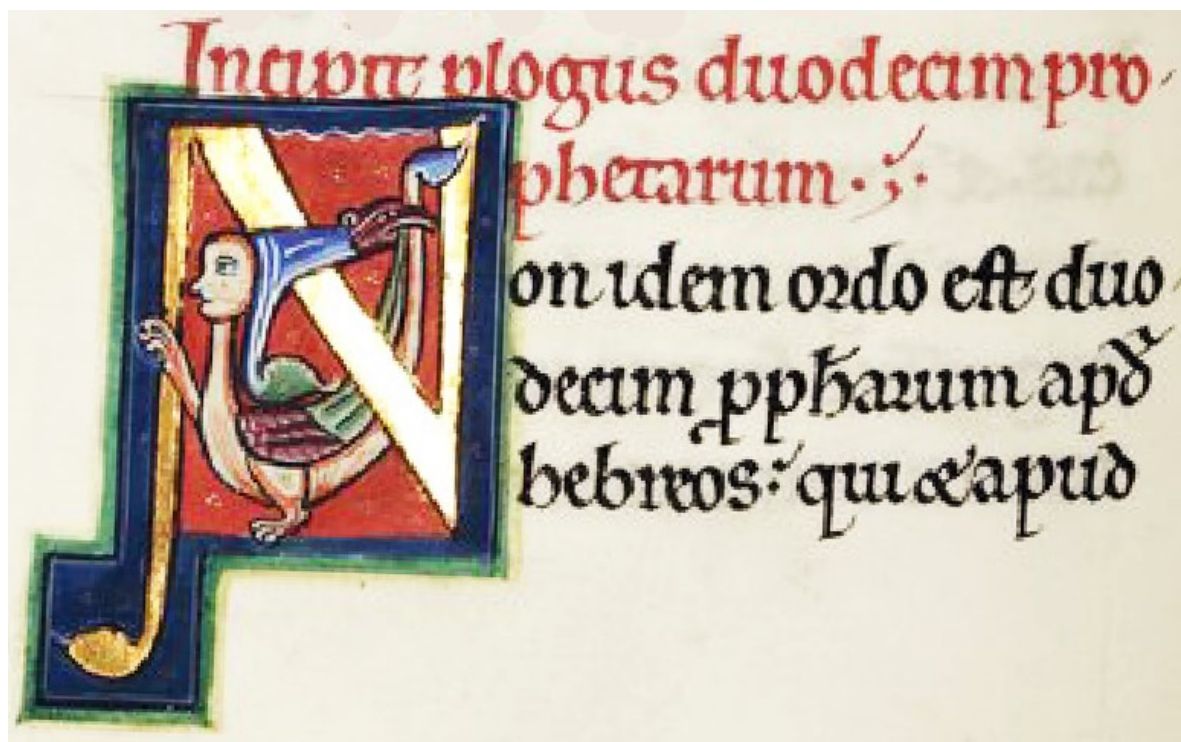 Incipit plogus duodecim pro
phetarum
Non idem ordo est duo
decim pphetarum apud
hebreos: qui & apud